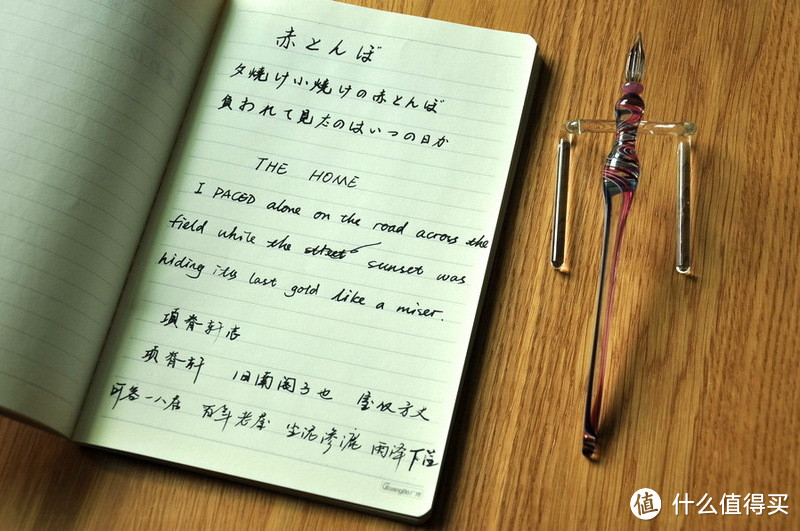 赤とんぼ
夕焼け小焼けの赤とんぼ
負われて見たのはいつの日か
THE HOME
I PACED alone on the road across the
field while the street sunset was
hiding its last gold like a miser.
项脊轩志
项脊轩 旧南阁子也 室仅方丈
可容一人居 百年老屋 尘泥渗漉 雨泽下注
值 什么值得买